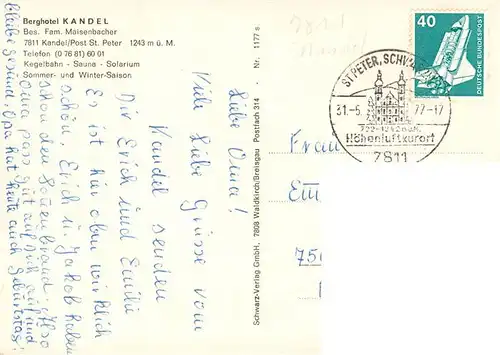 Berghotel KANDEL
Bes. Fam. Maisenbacher
7811 Kandel/Post St. Peter 1243 m ü. M.
Telefon (0 76 81) 60 01
Kegelbahn - Sauna - Solarium
Sommer- und Winter-Saison
Liebe Oma!
Viele liebe Grüsse vom
Kandel senden
Dir Erich und Emilie
Es ist hier oben wirklich
schön, Erich u. Jakob haben
schon den Sonnenbrand. Also
Oma pass gut auf Dich auf und
bleibe gesund, Opa hat heute auch Geburtstag!
Schwarz-Verlag GmbH. 7808 Waldkirch/Breisgau Postfach 314 · Nr. 1177 s
7811
40
DEUTSCHE BUNDESPOST
ST. PETER, SCHWARZW
31.-5. 77-17
722-1242 m ü. M.
Höhenluftkurort
7811
Frau
Em
75